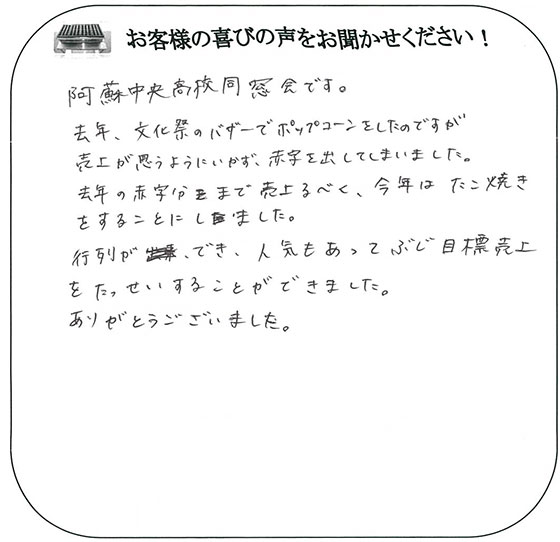 お客様の喜びの声をお聞かせください！
阿蘇中央高校同窓会です。
去年、文化祭のバザーでポップコーンをしたのですが
売上が思うようにいかず、赤字を出してしまいました。
去年の赤字分まで売上るべく、今年はたこ焼き
をすることにしました。
行列ができ、人気もあってぶじ目標売上
をたっせいすることができました。
ありがとうございました。